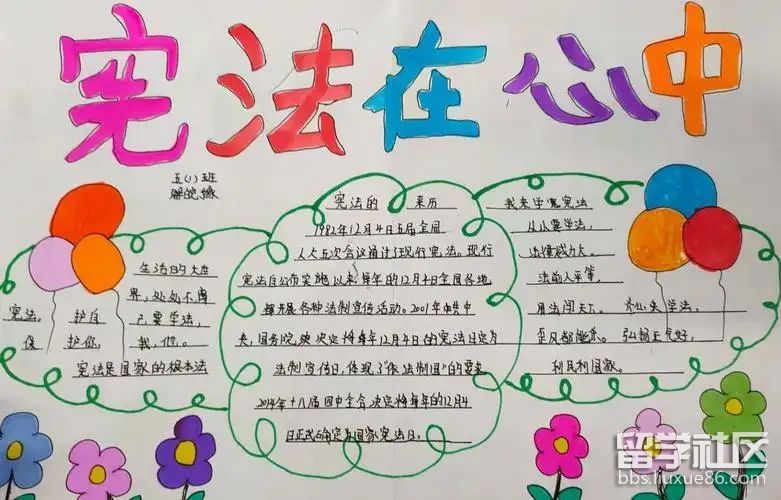 宪法在心中
五(1)班
宪法的来历
1982年12月4日五届全国
人大五次会议通过了现行宪法。现行
宪法自公布实施以来每年的12月4日全国各地
都开展各种法制宣传活动。2001年中共中
央,国务院决定将每年12月4日的宪法日定为
法制宣传日,体现了"依法制国"的要求
2014年十八届四中全会决定将每年的12月4
日正式确定为国家宪法日。
生活的大世
界,处处不离
宪法。护自己要学法,
保护你,我,他。
宪法是国家的根本法
我来学宪法
从小要学法,
法律威力大。
法前人平等,
用法闯天下。齐心夫学法,
歪风都能煞。弘扬正气好,
利民利国家。
留学社区
bbs.liuxue86.com